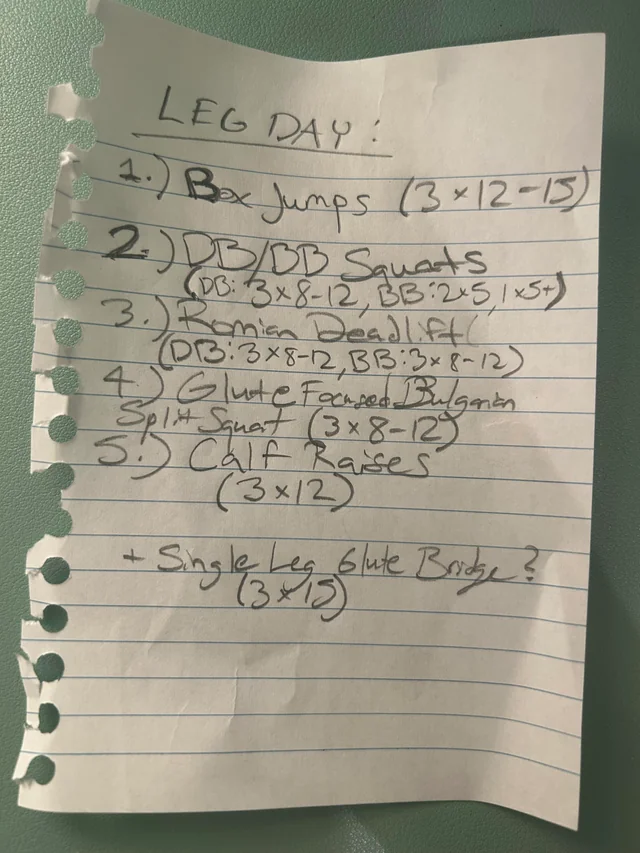 LEG DAY:
1.) Box Jumps (3×12-15)
2.) DB/BB Squats
(DB: 3×8-12, BB: 2×5, 1×5+)
3.) Romian Deadlift(
(DB: 3×8-12, BB: 3×8-12)
4.) Glute Focused Bulgarian
Split Squat (3×8-12)
5.) Calf Raises
(3×12)
+ Single Leg Glute Bridge?
(3×15)